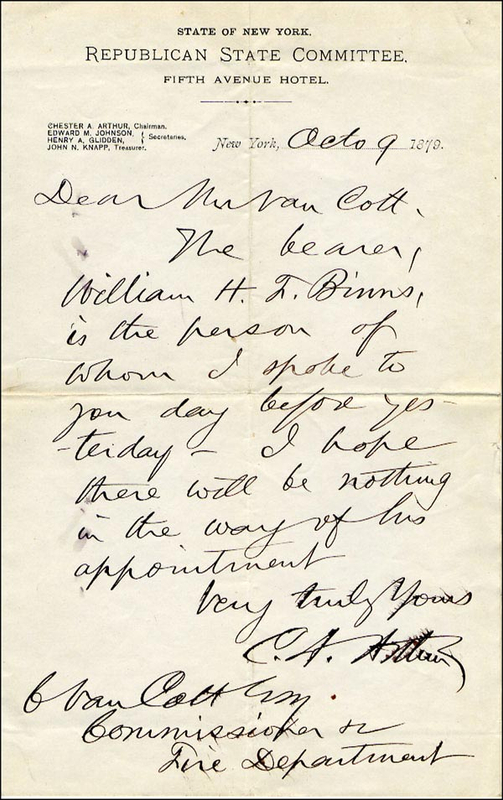 STATE OF NEW YORK.
REPUBLICAN STATE COMMITTEE.
FIFTH AVENUE HOTEL.
CHESTER A. ARTHUR, Chairman.
EDWARD M. JOHNSON,
HENRY A. GLIDDEN, } Secretaries.
JOHN N. KNAPP, Treasurer.
New York, Octo 9 1879.
Dear Mr Van Cott.
The bearer,
William H. F. Binns,
is the person of
whom I spoke to
you day before yes-
-terday - I hope
there will be nothing
in the way of his
appointment
Very truly Yours
C. A. Arthur
C Van Cott Esq.
Commissioner &c
Fire Department